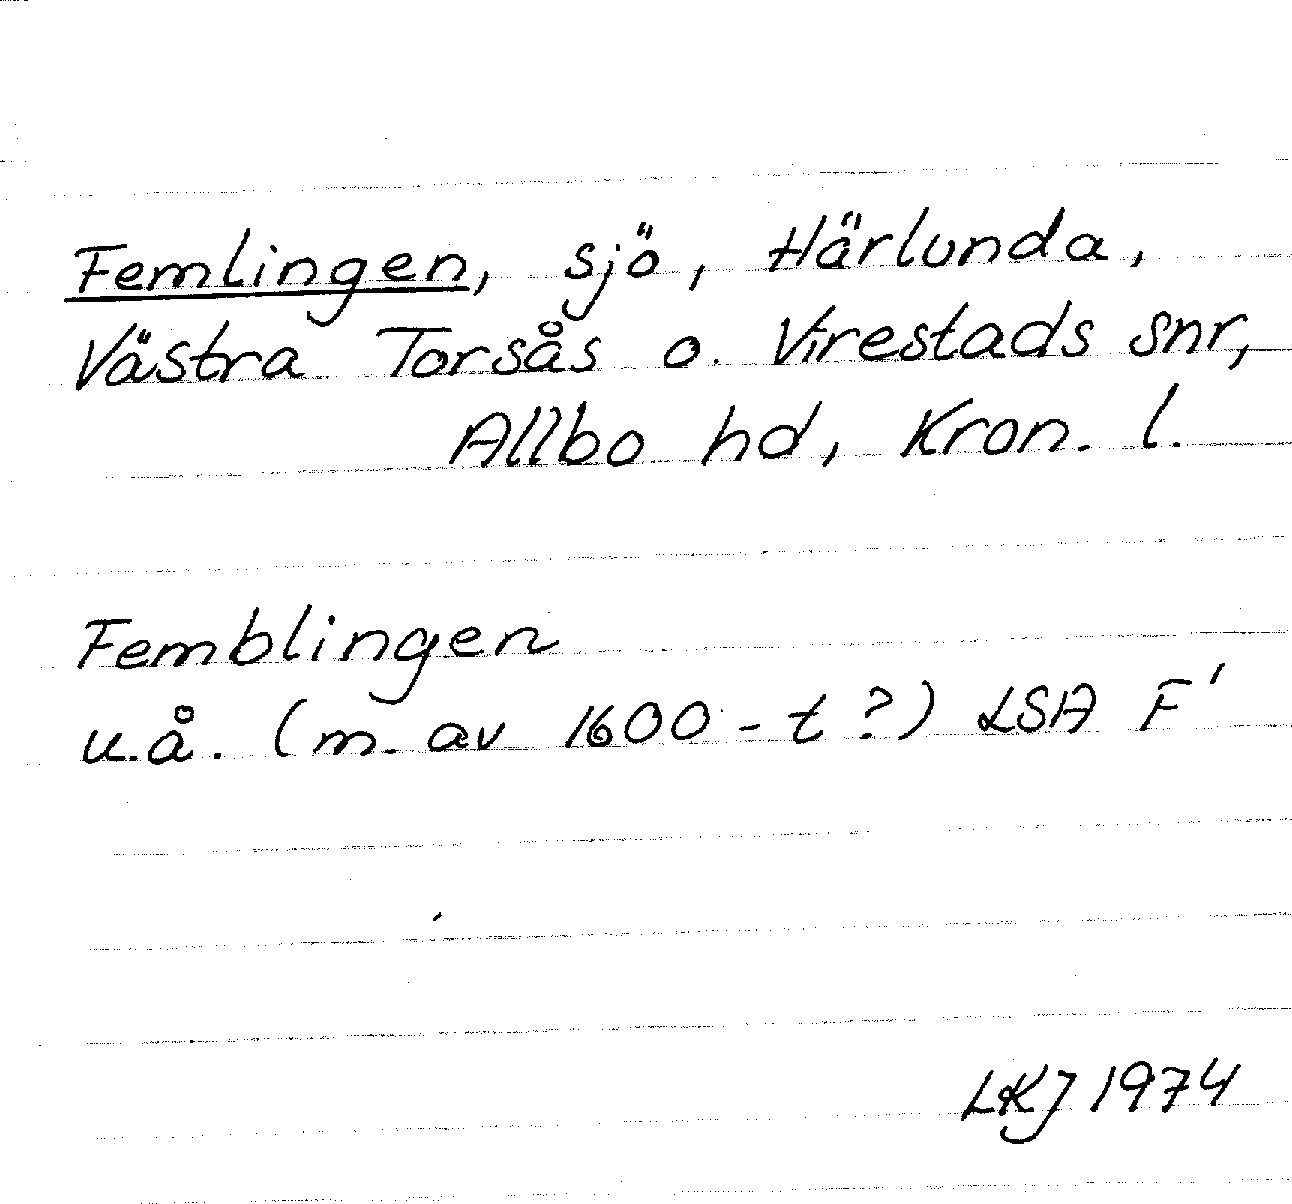 Femlingen, sjö, Härlunda,
Västra Torsås o. Virestads snr,
Allbo hd, Kron. l.
Femblingen
u.å. (m. av 1600-t?) LSA F'
LKJ 1974